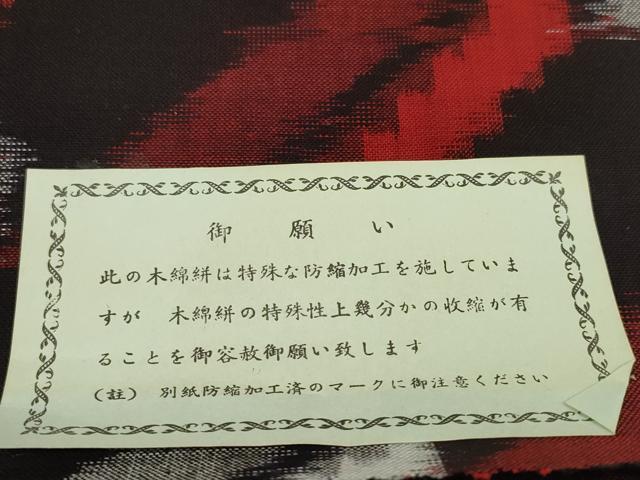 御願い
此の木綿絣は特殊な防縮加工を施していま
すが 木綿絣の特殊性上幾分かの収縮が有
ることを御容赦御願い致します
(註) 別紙防縮加工済のマークに御注意ください